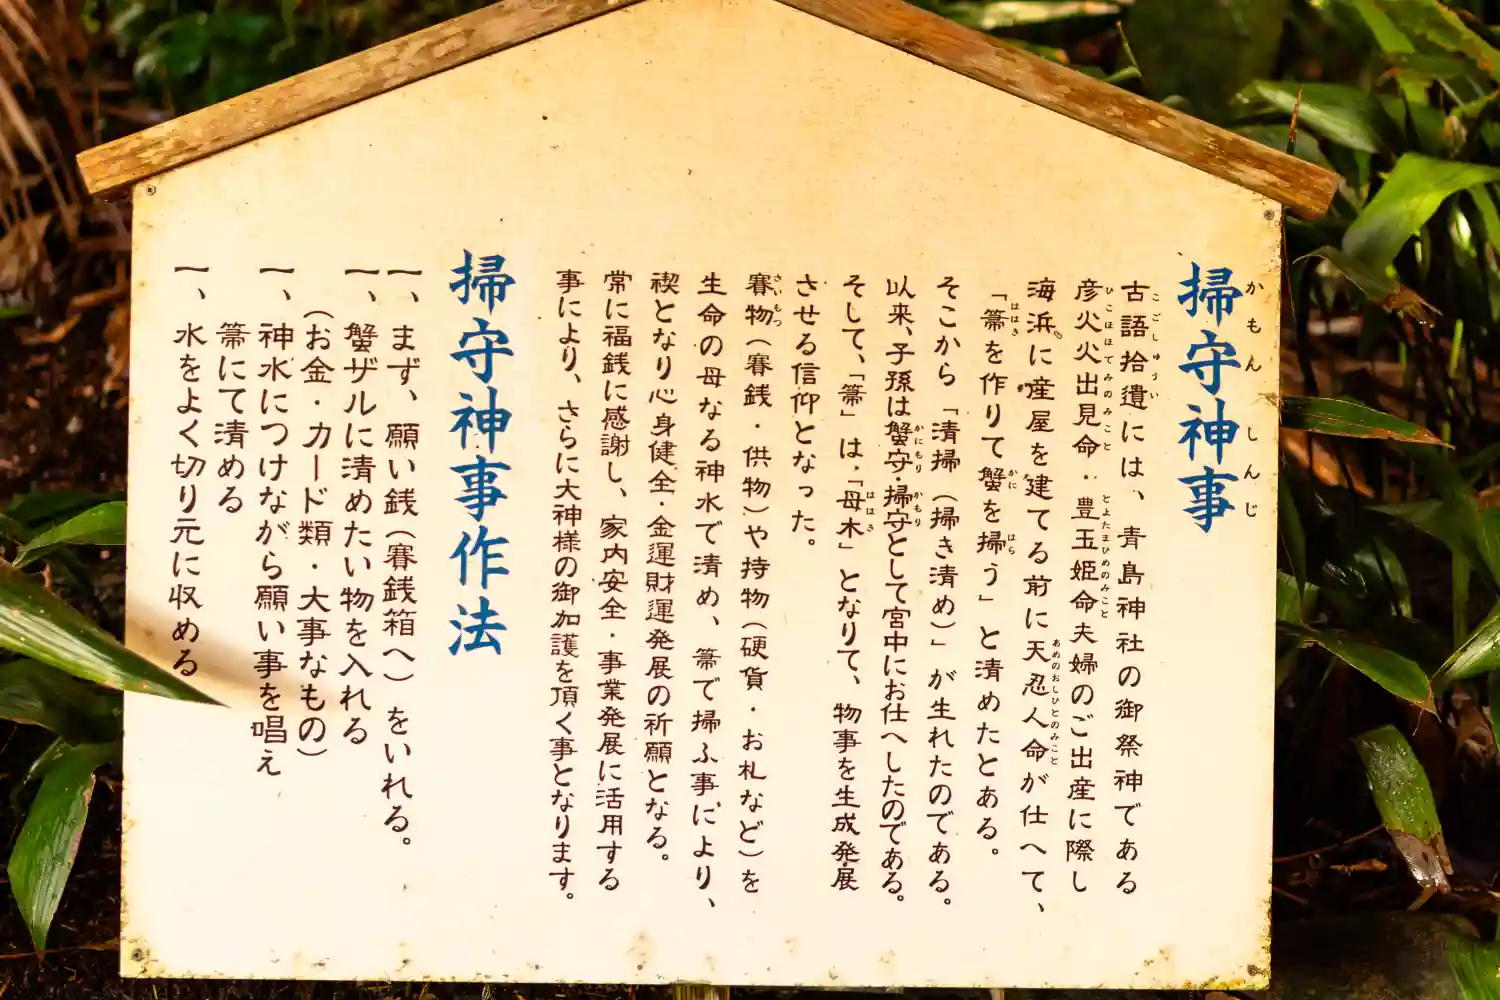 掃守神事
かもん しんじ
古語拾遺には、青島神社の御祭神である
こごしゅうい
彦火火出見命・豊玉姫命夫婦のご出産に際し
ひこほほでみのみこと とよたまひめのみこと
海浜に産屋を建てる前に天忍人命が仕へて、
あめのおしひとのみこと
「箒を作りて蟹を掃う」と清めたとある。
ははき かに はら
そこから「清掃(掃き清め)」が生れたのである。
以来、子孫は蟹守・掃守として宮中にお仕へしたのである。
かにもり かもり
そして、「箒」は、「母木」となりて、物事を生成発展
ははき
させる信仰となった。
賽物(賽銭・供物)や持物(硬貨・お札など)を
さいもつ
生命の母なる神水で清め、箒で掃ふ事により、
禊となり心身健全・金運財運発展の祈願となる。
常に福銭に感謝し、家内安全・事業発展に活用する
事により、さらに大神様の御加護を頂く事となります。
掃守神事作法
一、まず、願い銭(賽銭箱へ)をいれる。
一、蟹ザルに清めたい物を入れる
(お金・カード類・大事なもの)
一、神水につけながら願い事を唱え
箒にて清める
一、水をよく切り元に収める